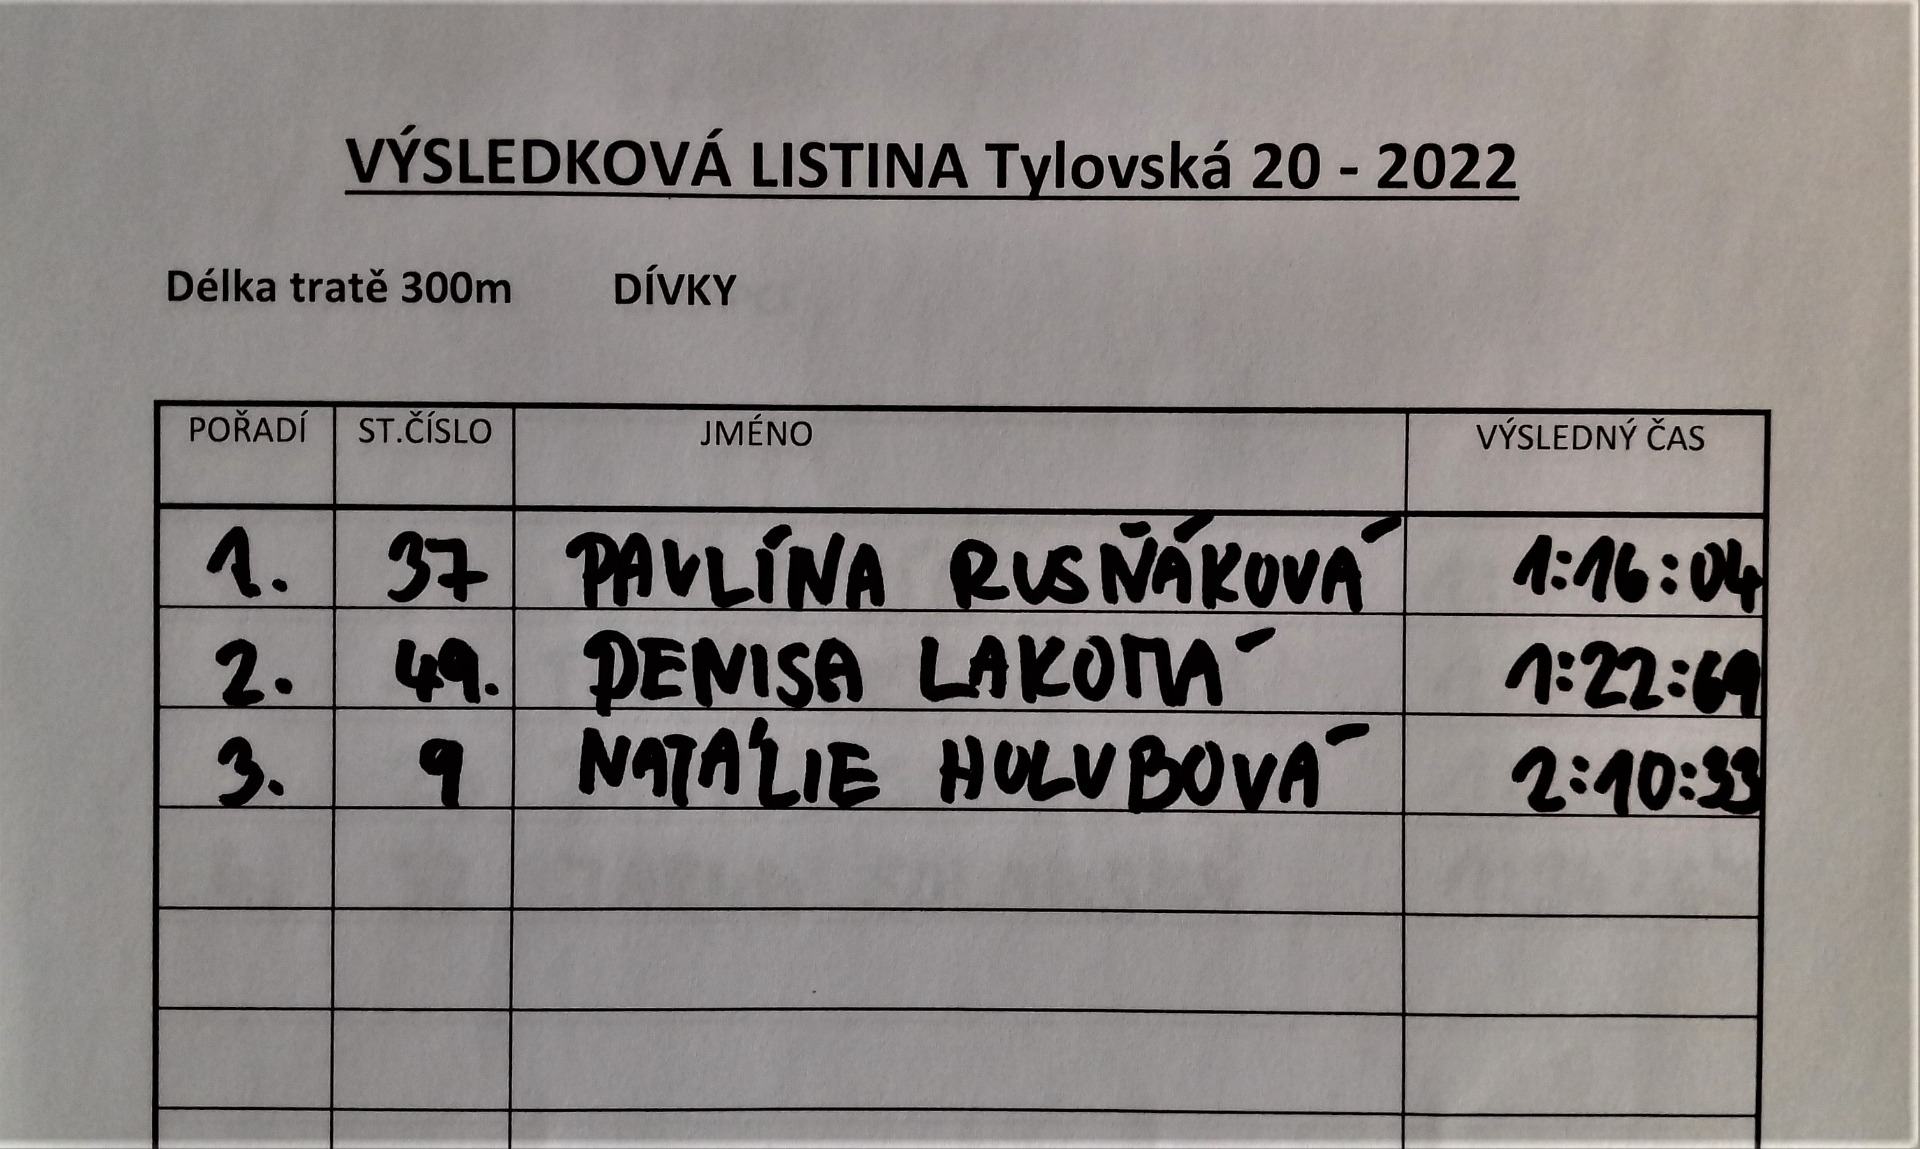 VÝSLEDKOVÁ LISTINA Tylovská 20 - 2022
Délka tratě 300m DÍVKY
POŘADÍ ST.ČÍSLO JMÉNO VÝSLEDNÝ ČAS
1. 37 PAVLÍNA RUSŇÁKOVÁ 1:16:04
2. 49. DENISA LAKOMÁ 1:22:69
3. 9 NATÁLIE HOLUBOVÁ 2:10:33